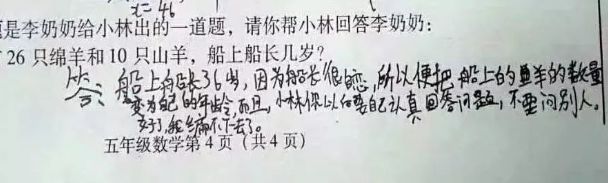 x= 46
是李奶奶给小林出的一道题，请你帮小林回答李奶奶：
26 只绵羊和 10 只山羊，船上船长几岁？
答：船上船长36岁，因为船长很的恋，所以便把船上的羊的数量
变为自己的年龄，而且，小林你以后要自己认真回答问题，不要问别人。
我编不下去了。
五年级数学第 4 页（共 4 页）